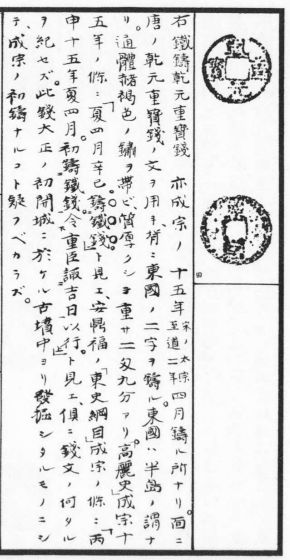 乾元重寶
東國
四
右鐵鑄乾元重寶錢 亦成宗ノ十五年宋ノ太宗至道二年四月鑄ル所ナリ。面ニ
唐ノ乾元重寶錢ノ文ヲ用キ、背ニ東國ノ二字ヲ鑄ル。東國ハ半島ノ謂ナ
リ。通體赭褐色ノ鏽ヲ帶ビ、質厚クシテ重サ二匁九分アリ。高麗史成宗十
五年ノ條ニ「夏四月辛巳鑄鐵錢」ト見エ、安鼎福ノ「東史綱目」成宗ノ條ニ「丙
申十五年夏四月。初鑄鐵錢。令重臣諏吉日以行」ト見エ、俱ニ錢文ノ何タル
ヲ紀セズ。此錢大正ノ初開城ニ於ケル古墳中ヨリ發掘シタルモノニシ
テ、成宗ノ初鑄ナルコト疑フベカラズ。